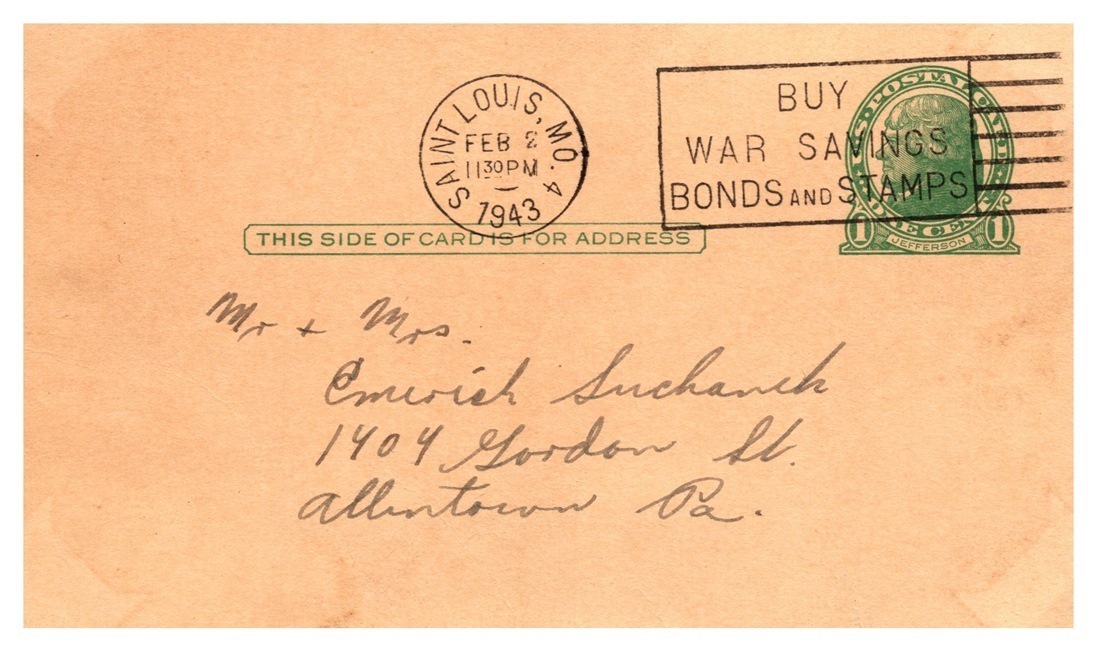 SAINT LOUIS, MO. 4
FEB 2
11 30 PM
1943
BUY
WAR SAVINGS
BONDS AND STAMPS
U.S. POSTAL CARD
ONE CENT
1 JEFFERSON 1
THIS SIDE OF CARD IS FOR ADDRESS
Mr + Mrs.
Emerich Suchanek
1404 Gordon St.
Allentown Pa.